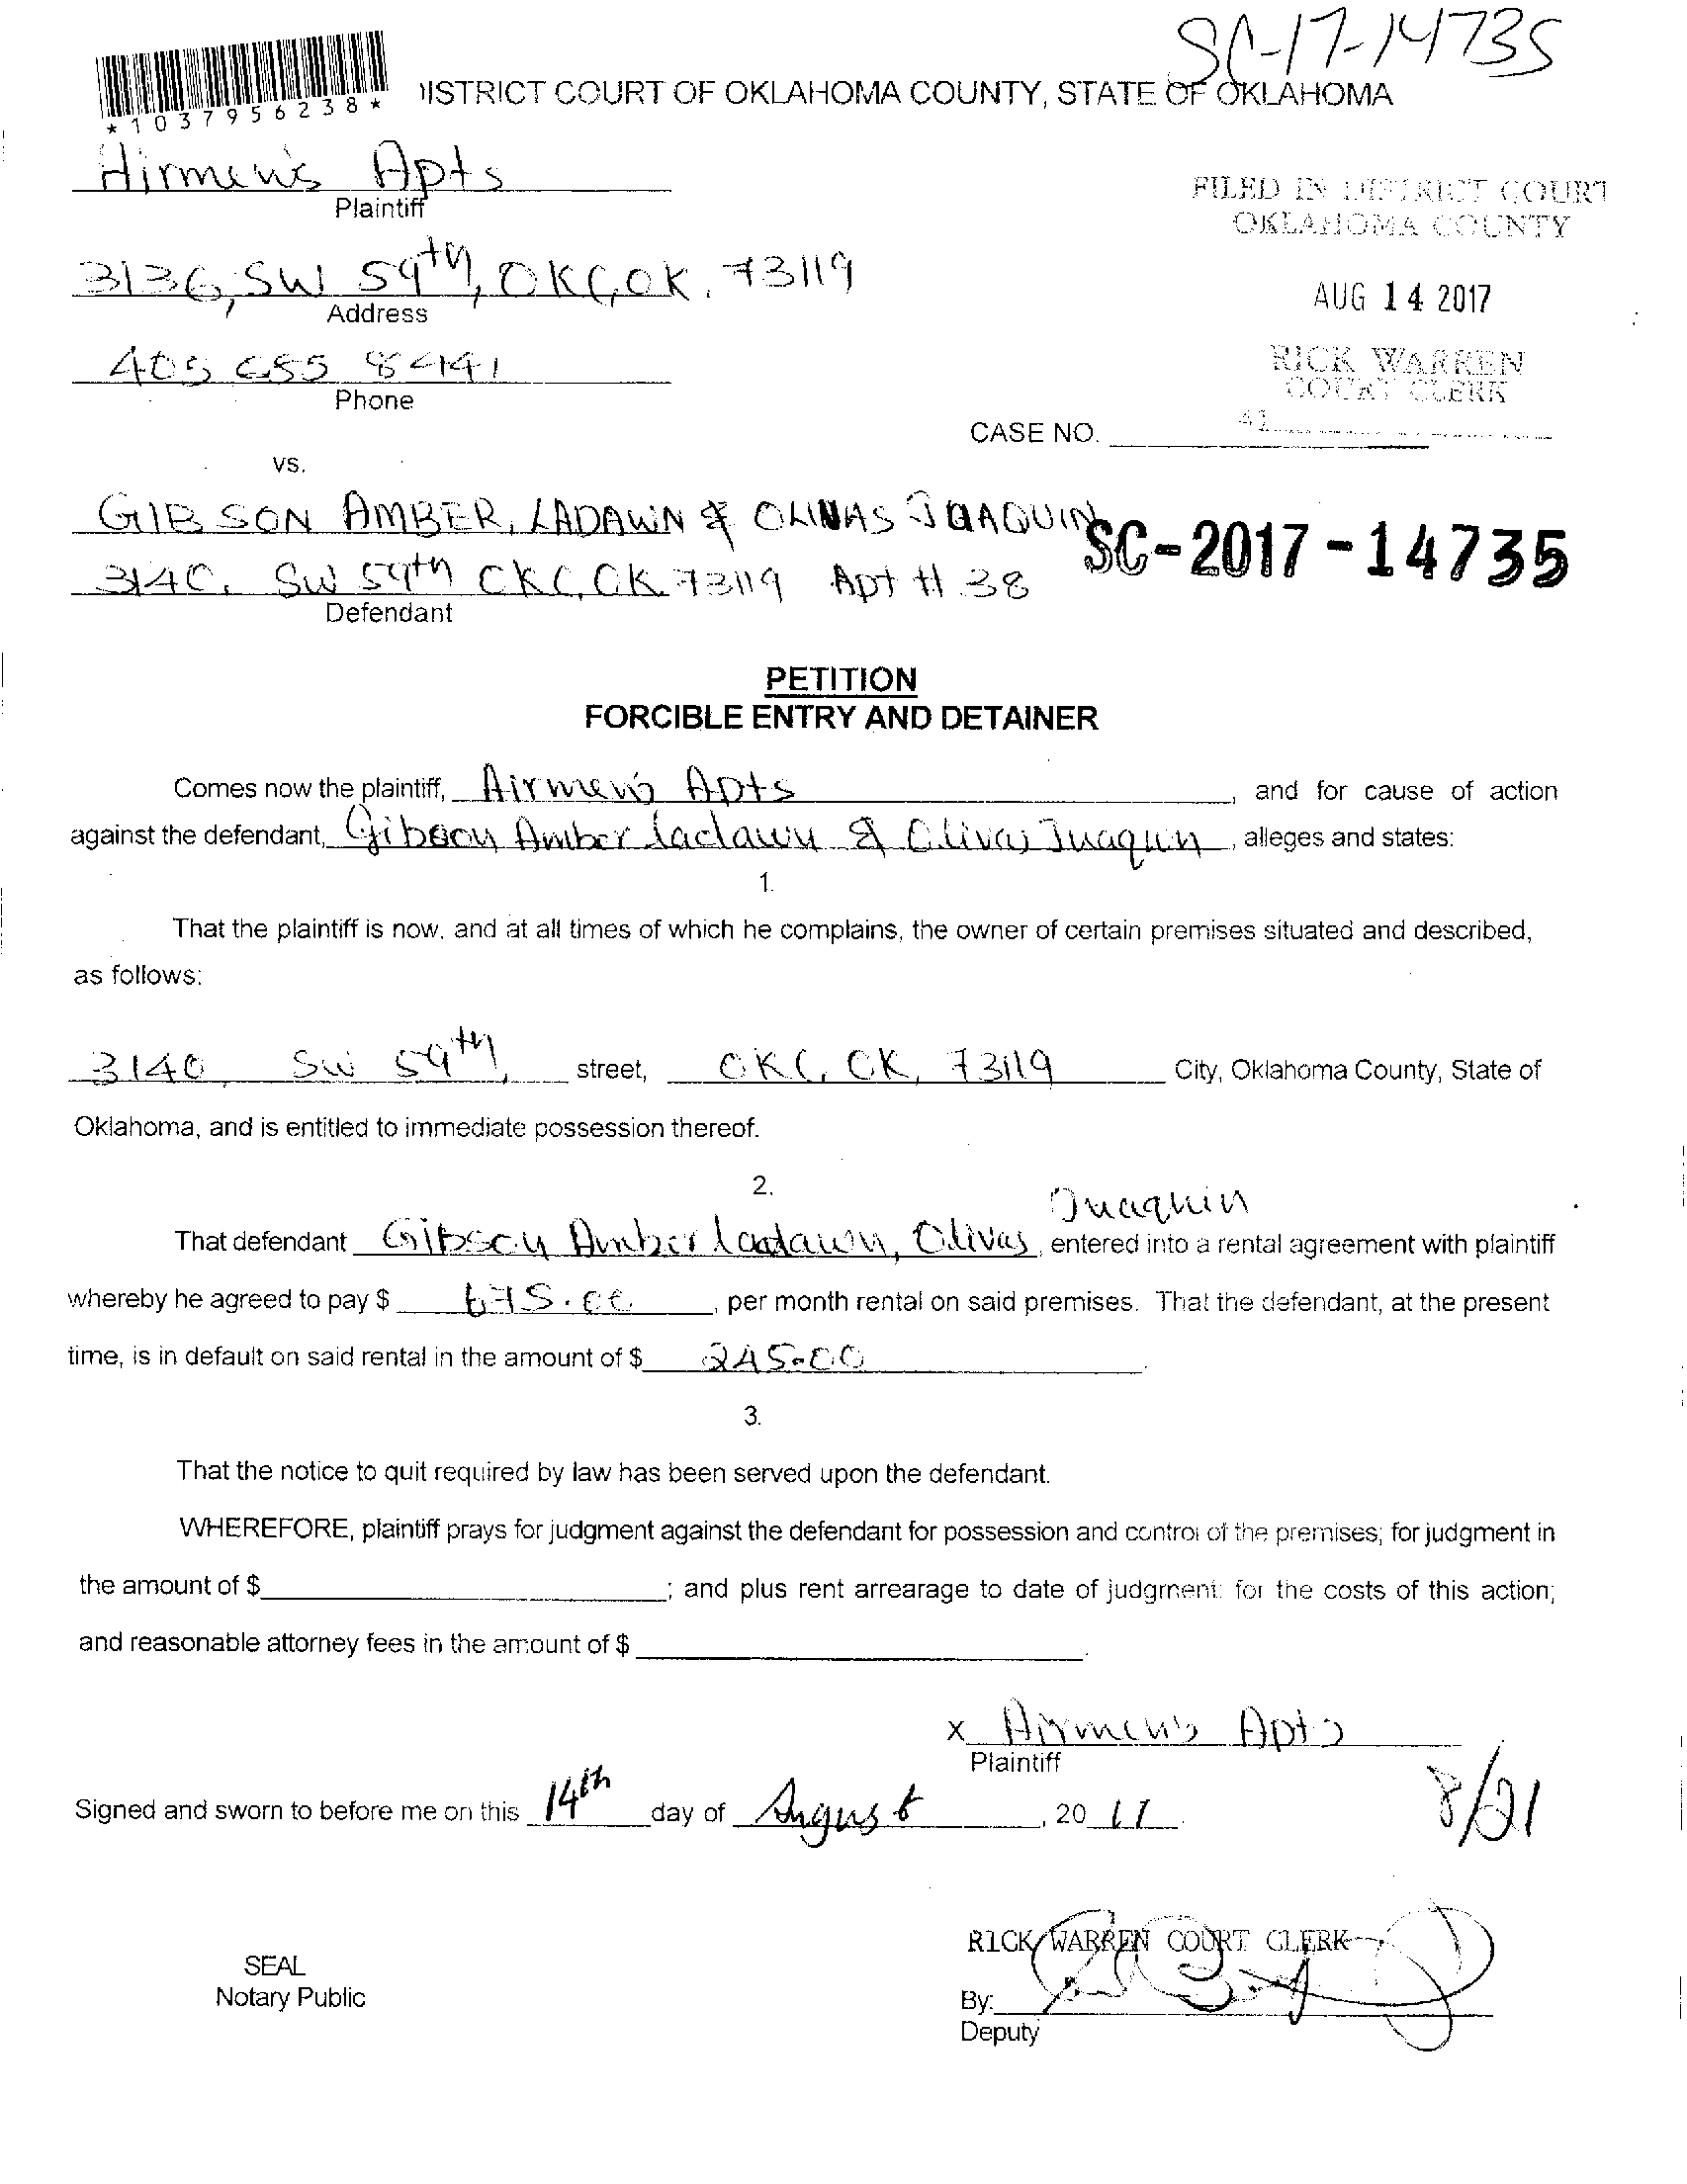 SC-17-14735
*1037956238*
DISTRICT COURT OF OKLAHOMA COUNTY, STATE OF OKLAHOMA
Airmen's Apts
Plaintiff
FILED IN DISTRICT COURT
OKLAHOMA COUNTY
3136, SW 59th, OKC, OK. 73119
Address
AUG 14 2017
405 655 8441
Phone
RICK WARREN
COURT CLERK
41
CASE NO.
vs.
GIBSON AMBER, LADAWN & OLIVAS JUAQUIN
SC-2017-14735
3140, SW 59th OKC, OK 73119 Apt # 38
Defendant
PETITION
FORCIBLE ENTRY AND DETAINER
Comes now the plaintiff, Airmen's Apts, and for cause of action
against the defendant, Gibson Amber ladawn & Olivas Juaquin, alleges and states:
1.
That the plaintiff is now, and at all times of which he complains, the owner of certain premises situated and described,
as follows:
3140, SW 59th, street, OKC, OK, 73119 City, Oklahoma County, State of
Oklahoma, and is entitled to immediate possession thereof.
2.
Juaquin
That defendant Gibson Amber ladawn, Olivas, entered into a rental agreement with plaintiff
whereby he agreed to pay $ 675.00, per month rental on said premises. That the defendant, at the present
time, is in default on said rental in the amount of $ 245.00.
3.
That the notice to quit required by law has been served upon the defendant.
WHEREFORE, plaintiff prays for judgment against the defendant for possession and control of the premises; for judgment in
the amount of $ ; and plus rent arrearage to date of judgment; for the costs of this action;
and reasonable attorney fees in the amount of $ .
x Airmen's Apts
Plaintiff
Signed and sworn to before me on this 14th day of August, 2017.
8/21
RICK WARREN COURT CLERK
SEAL
Notary Public
By:
Deputy